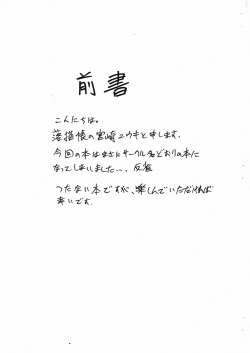 前書
こんにちは。
落描帳の宮崎ユウキと申します。
今回の本はまさにサークル名どおりの本に
なってしまいました…。反省
つたない本ですが、楽しんでいただければ
幸いです。